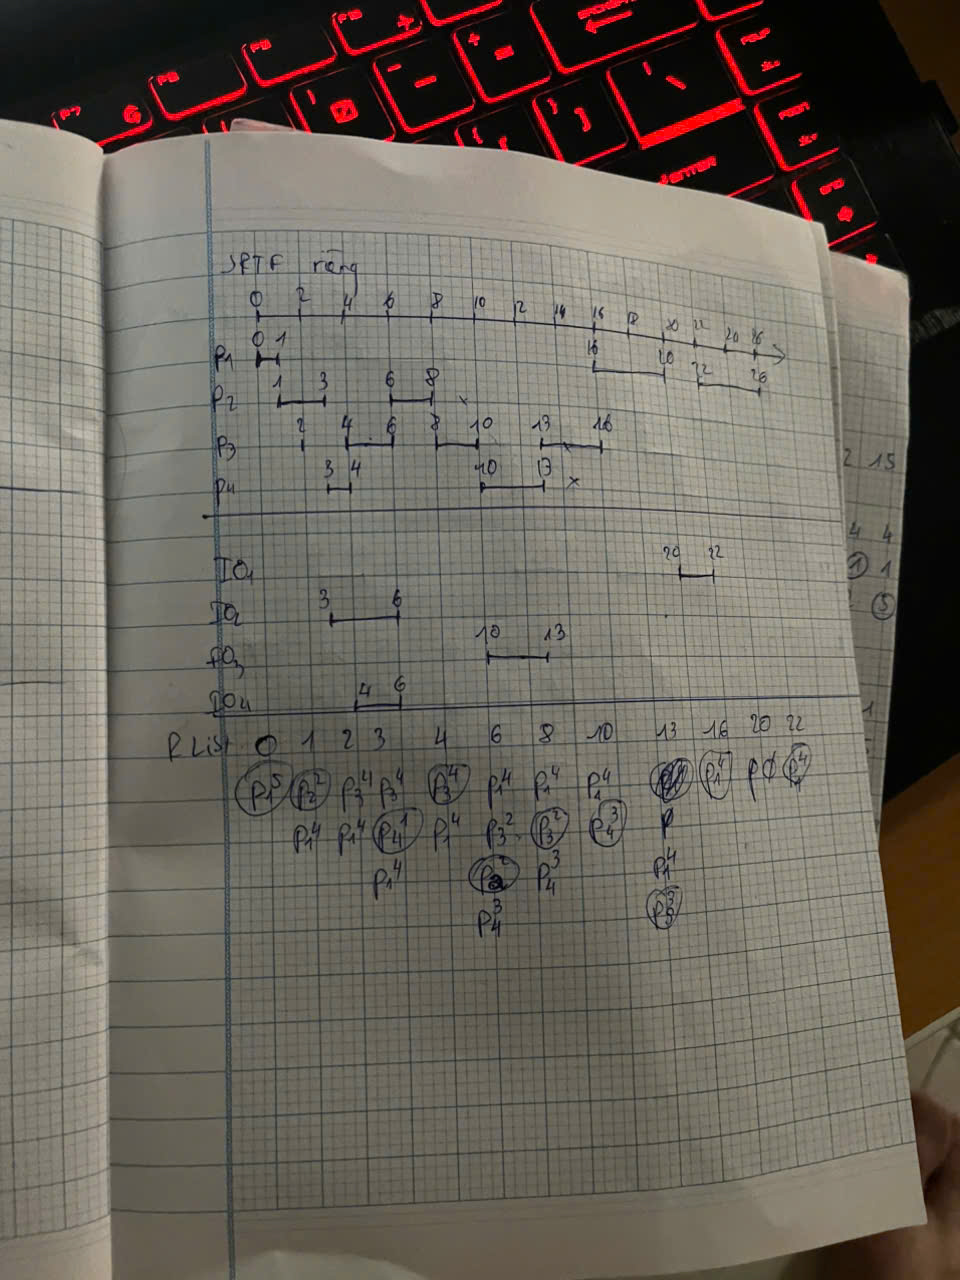 SRTF riêng
0 2 4 6 8 10 12 14 16 18 20 22 20 26
P1 0 1 16 20 22 26
P2 1 3 6 8 x
P3 2 4 6 8 10 13 16 x
P4 3 4 10 13 x
IO1 20 22
IO2 3 6
IO3 10 13
IO4 4 6
R List 0 1 2 3 4 6 8 10 13 16 20 22
P1^5 P2^2 P3^4 P3^4 P3^4 P1^4 P1^4 P1^4 P1^4 P1^4
P1^4 P1^4 P4^1 P1^4 P3^2 P3^2 P4^3 P
P1^4 P2^2 P4^3 P1^4
P4^3 P3^3
F7 F8 F9
ENTER
END
2 15
4 4
1 1
5
1